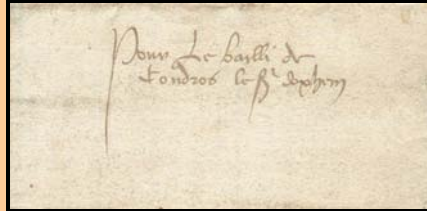 Pour Le bailli de
Tondros le sr